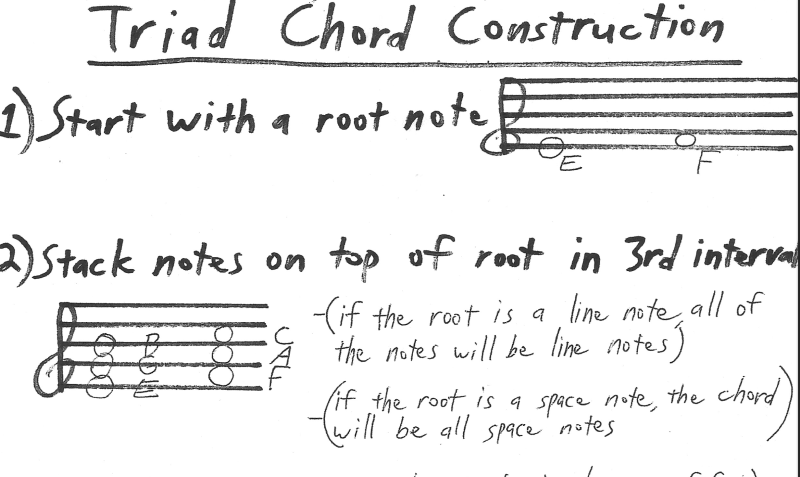 Triad Chord Construction
1) Start with a root note
E F
2) Stack notes on top of root in 3rd interval
B
G
E
C
A
F
-(if the root is a line note, all of
the notes will be line notes)
-(if the root is a space note, the chord)
will be all space notes